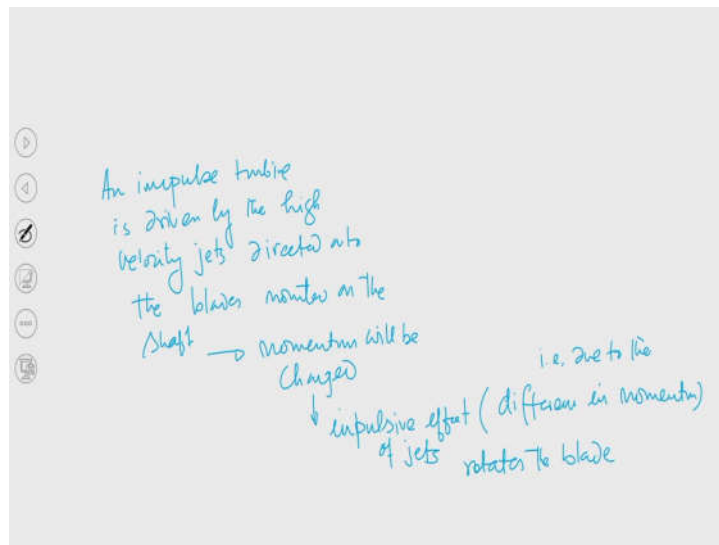 An impulse turbine
is driven by the high
velocity jets directed onto
the blades mounted on the
shaft → momentum will be
changed
↓ impulsive effect (i.e. due to the different in momentum)
of jets rotates the blade